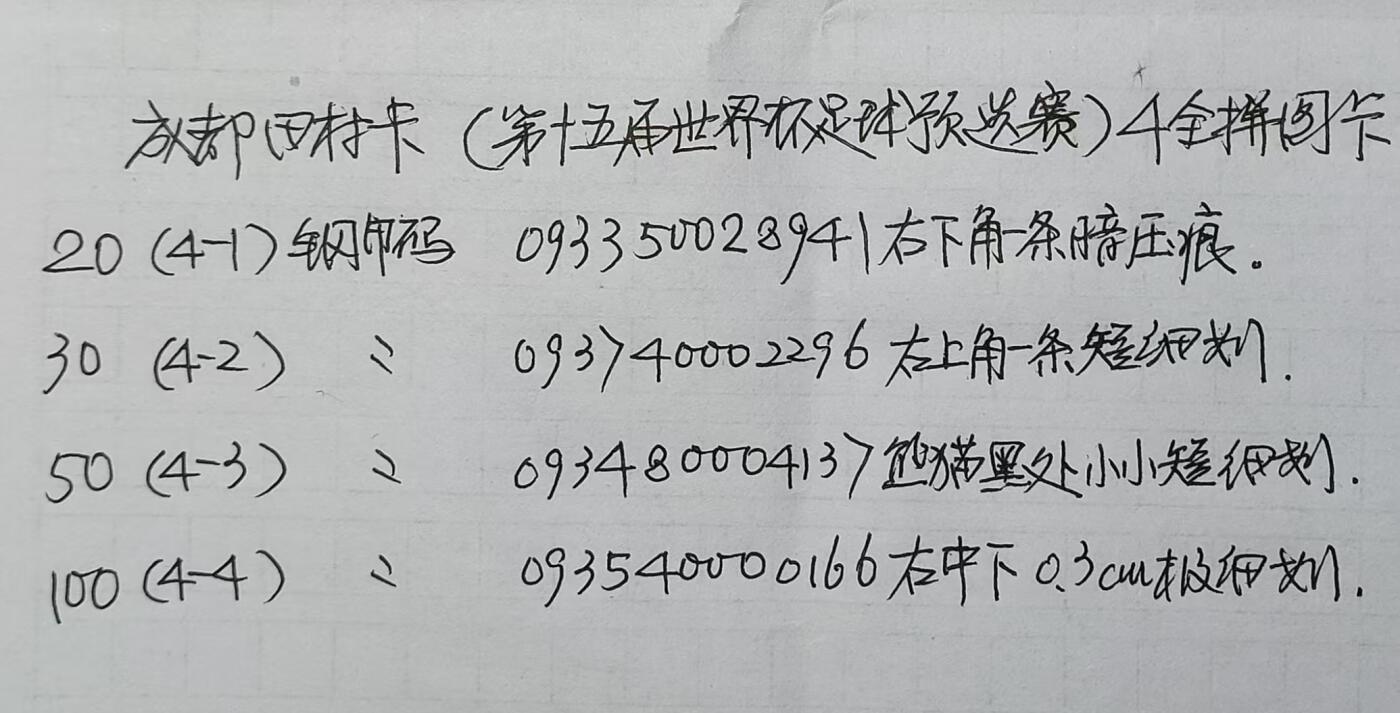 成都田村卡(第十五届世界杯足球预选赛)4全拼图卡
20 (4-1) 钢印码 093350028941右下角一条暗压痕。
30 (4-2) 〃 093740002296右上角一条短细划.
50 (4-3) 〃 093480004137熊猫黑处小小短细划.
100 (4-4) 〃 093540000166右中下0.3cm极细划.